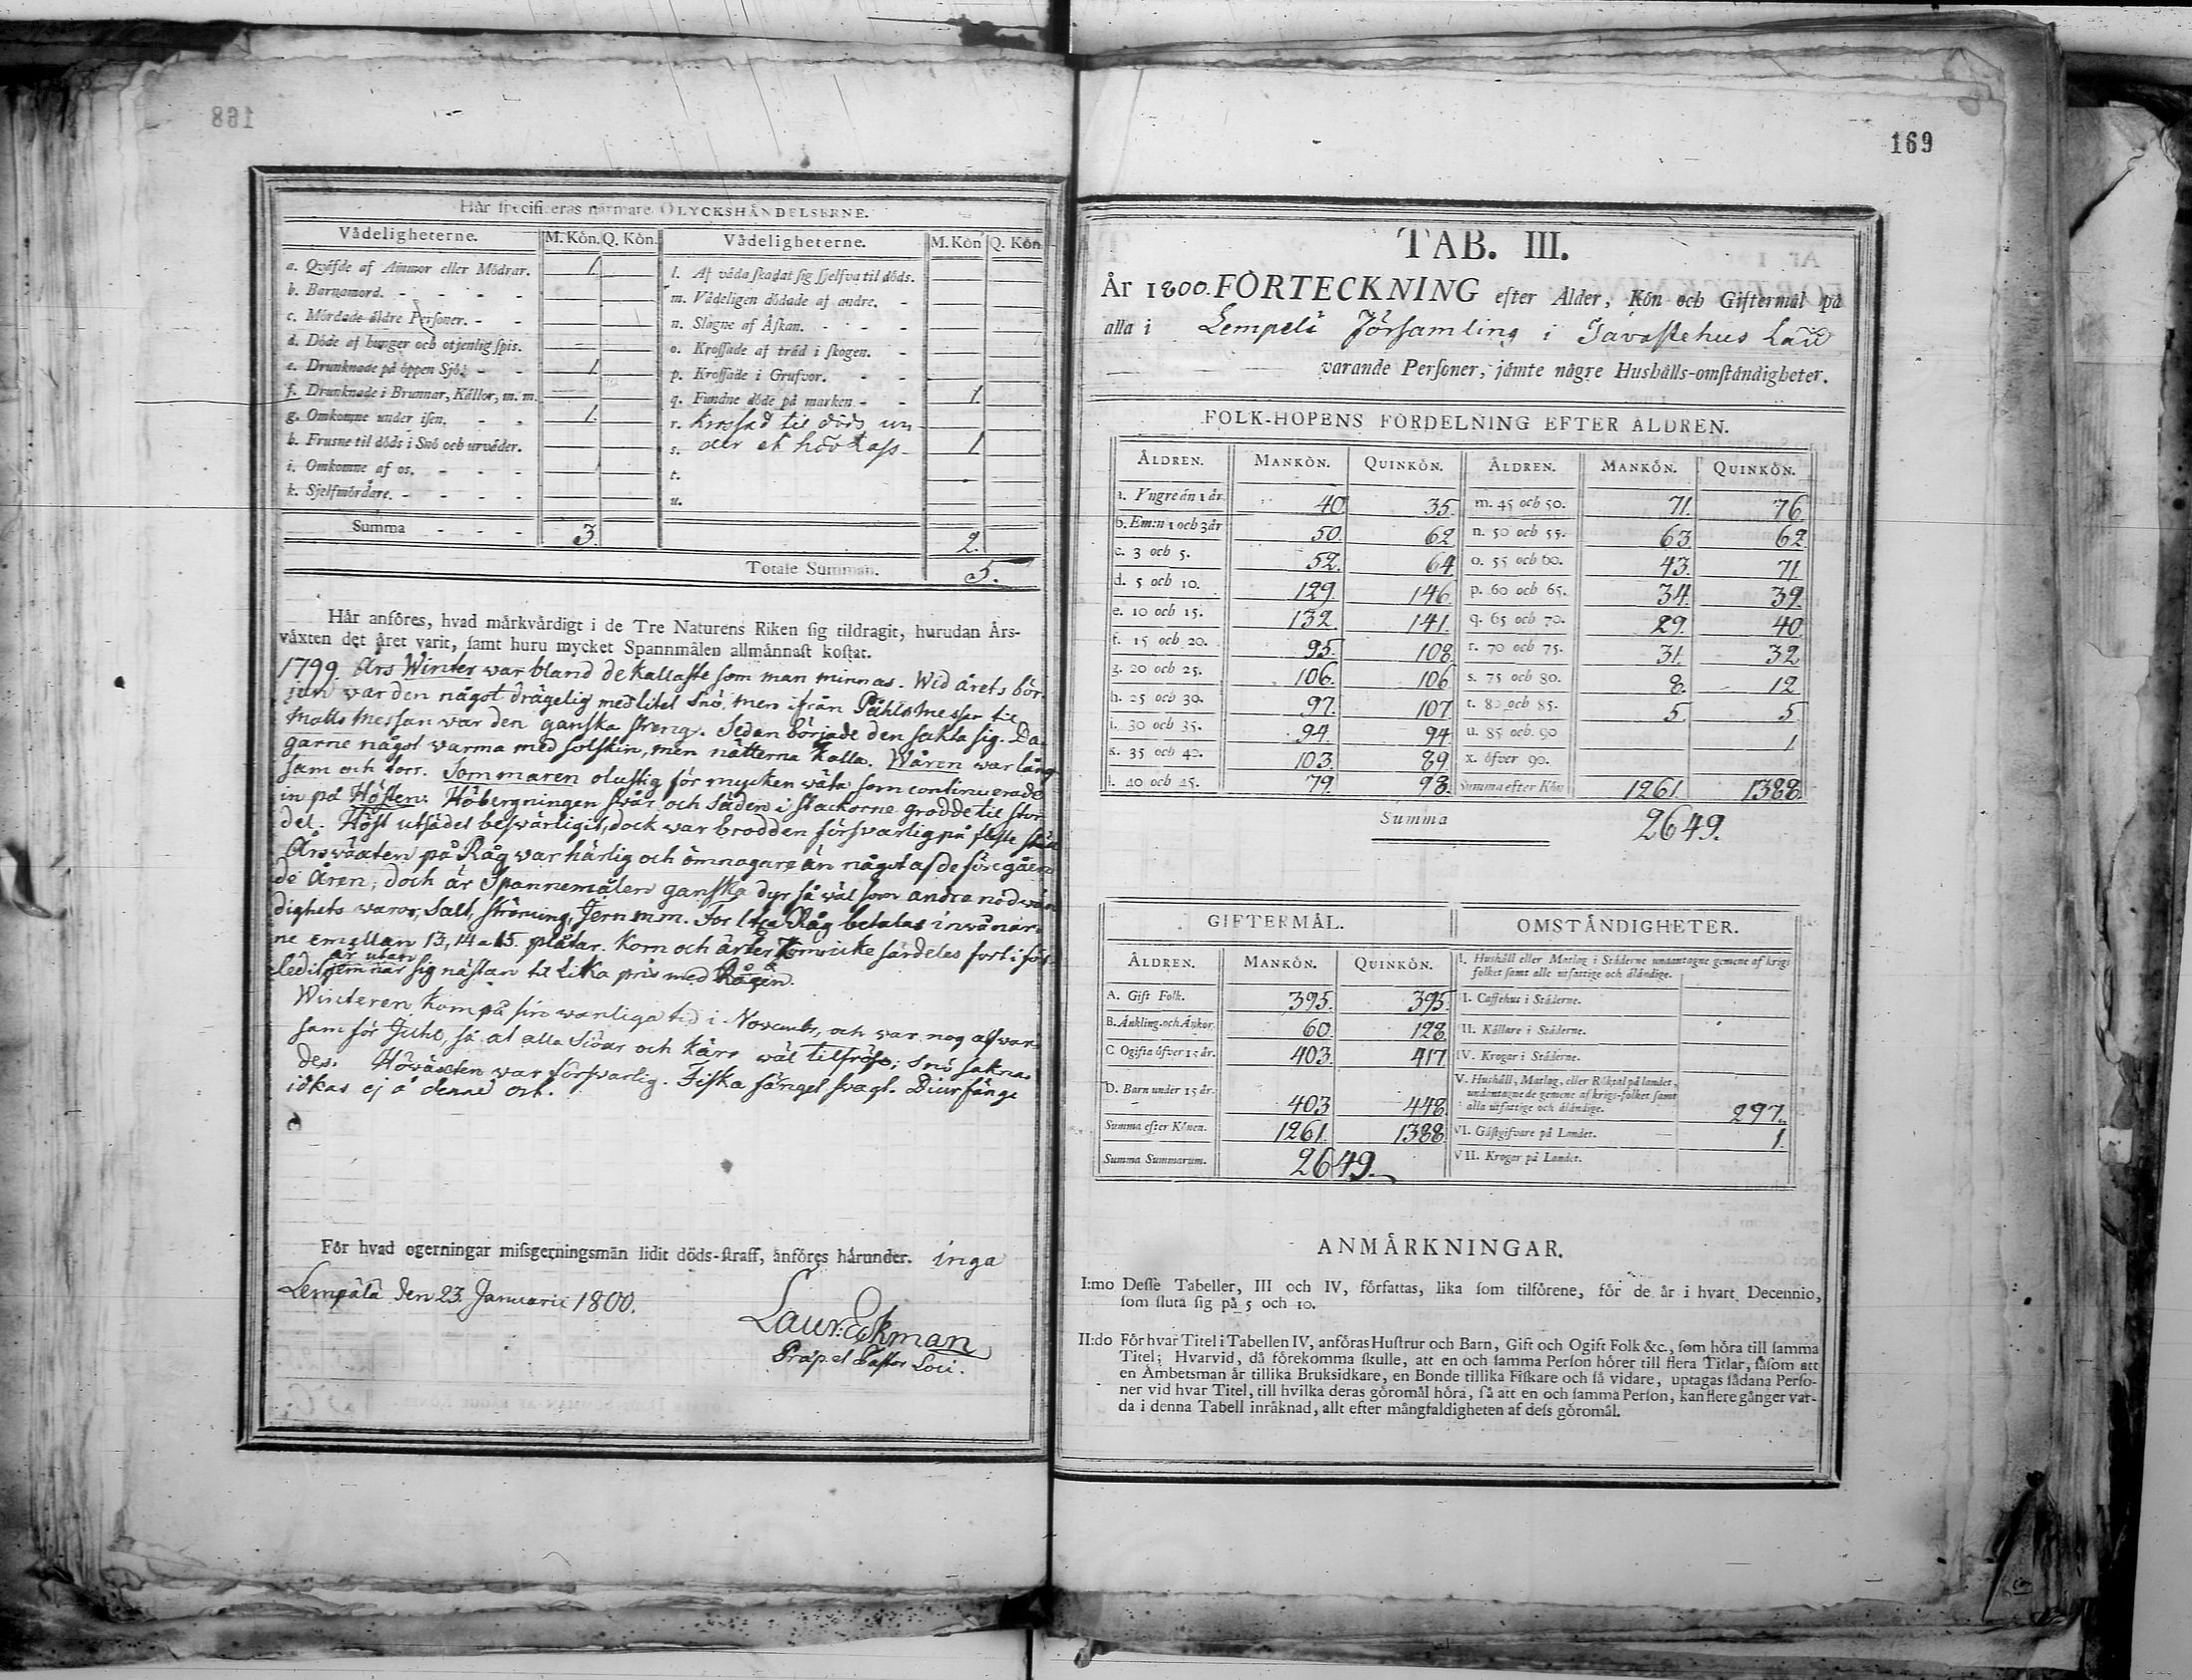 168
Här specificeras närmare OLYCKSHÄNDELSERNE.
Vådeligheterne. M. Kön. Q. Kön. Vådeligheterne. M. Kön Q. Kön
a. Qväfde af Ammor eller Mödrar. 1. l. Af våda skadat sig sjelfva til döds.
b. Barnamord. - - - - m. Vådeligen dödade af andre. -
c. Mördade äldre Personer. - - n. Slagne af Åskan. - - -
d. Döde af hunger och otjenlig spis. o. Krossade af träd i skogen. -
e. Drunknade på öppen Sjö. - - 1. p. Krossade i Grufvor. - -
f. Drunknade i Brunnar, Källor, m. m. q. Fundne döde på marken. - - 1.
g. Omkomne under isen. - - 1. r. krossad til döds un
h. Frusne til döds i Snö och urväder. s. der et 1
i. Omkomne af os. - - - t.
k. Sjelfmördare. - - - - u.
Summa - - - 3. 2.
Totale Summan. 5.
Här anföres, hvad märkvärdigt i de Tre Naturens Riken sig tildragit, hurudan Års-
växten det året varit, samt huru mycket Spannmålen allmännast kostat.
1799 Års Winter war bland de kallaste som man minnas. Wid årets bör-
jan war den något drägelig med litet Snö, men ifrån Påhls messe til
Matts Messan war den ganska streng. Sedan började den sakta sig. Da-
garne något warma med solskin, men nätterna kalla. Wåren war lång
sam och torr. Sommaren olustig för mycken wäta som continuerade
in på Hösten. Höbergningen swår och Säden i skackorne grodde til stor
del. Höst utsädet beswärligit, dock war brodden försvarlig på
Årswäxten på Råg war härlig och ömnogare än något af de föregåen
de åren; doch är Spannemålen ganska dyr så wäl som andra nödwän
dighets waror, Salt, Strömming, Jern m m. För 1 t:a Råg betalas inwånar-
ne emellan 13, 14 a 15 plåtar. Korn och ärter särdeles fort i för-
är utan
ledit när sig nästan til lika pris med Rågen.
Winteren kom på sin wanliga tid i Novembr, och war nog alfwar-
sam för Juhl, så at alla Siöar och Kärr wäl tilfröso; Snö saknas
des. Höwäxten war försvarlig. Fiska fänget svagt. Diurfänge
idkas ej å denne ort.
För hvad ogerningar missgerningsmän lidit döds-straff, anföres härunder. inga
Lempälä den 23. Januarii 1800.
Laur: Eckman
Præp. et Pastor Loci.
169
TAB. III.
År 1800. FÖRTECKNING efter Ålder, Kön och Giftermål på
alla i Lempelä Församling i Tavastehus Län
varande Personer, jämte någre Hushålls-omständigheter.
FOLK-HOPENS FÖRDELNING EFTER ÅLDREN.
ÅLDREN. MANKÖN. QUINKÖN. ÅLDREN. MANKÖN. QUINKÖN.
a. Yngre än 1 år. 40 35. m. 45 och 50. 71. 76.
b. Em:n 1 och 3 år 50. 62. n. 50 och 55. 63. 62.
c. 3 och 5. 52. 64. o. 55 och 60. 43. 71.
d. 5 och 10. 129. 146. p. 60 och 65. 34. 39.
e. 10 och 15. 132. 141. q. 65 och 70. 29. 40.
f. 15 och 20. 95. 108. r. 70 och 75. 31. 32
g. 20 och 25. 106. 106. s. 75 och 80. 8. 12
h. 25 och 30. 97. 107. t. 80 och 85. 5 5
i. 30 och 35. 94. 94 u. 85 och 90 1
k. 35 och 40. 103. 89 x. öfver 90.
l. 40 och 45. 79. 93. Summa efter Kön 1261. 1388.
Summa 2649.
GIFTERMÅL. OMSTÄNDIGHETER.
ÅLDREN. MANKÖN. QUINKÖN. I. Hushåll eller Matlag i Städerne undantagne gemene af krigs
folket samt alle utfattige och åländige.
A. Gift Folk. 395. 395. I. Caffehus i Städerne.
B. Änkling. och Änkor. 60. 128. II. Källare i Städerne.
C. Ogifta öfver 15 år. 403. 417. IV. Krogar i Städerne.
D. Barn under 15 år. 403 448. V. Hushåll, Matlag, eller Röktal på landet,
undantagne de gemene af krigs-folket samt
alla utfattige och åländige. 297.
Summa efter Könen. 1261. 1388. VI. Gästgifvare på Landet. 1.
Summa Summarum. 2649. VII. Krogar på Landet.
ANMÄRKNINGAR.
I:mo Desse Tabeller, III och IV, författas, lika som tilförene, för de år i hvart Decennio,
som sluta sig på 5 och 10.
II:do För hvar Titel i Tabellen IV, anföras Hustrur och Barn, Gift och Ogift Folk &c., som höra till samma
Titel; Hvarvid, då förekomma skulle, att en och samma Person hörer till flera Titlar, såsom att
en Ämbetsman är tillika Bruksidkare, en Bonde tillika Fiskare och så vidare, uptagas sådana Perso-
ner vid hvar Titel, till hvilka deras göromål höra, så att en och samma Person, kan flere gånger var-
da i denna Tabell inräknad, allt efter mångfaldigheten af dess göromål.